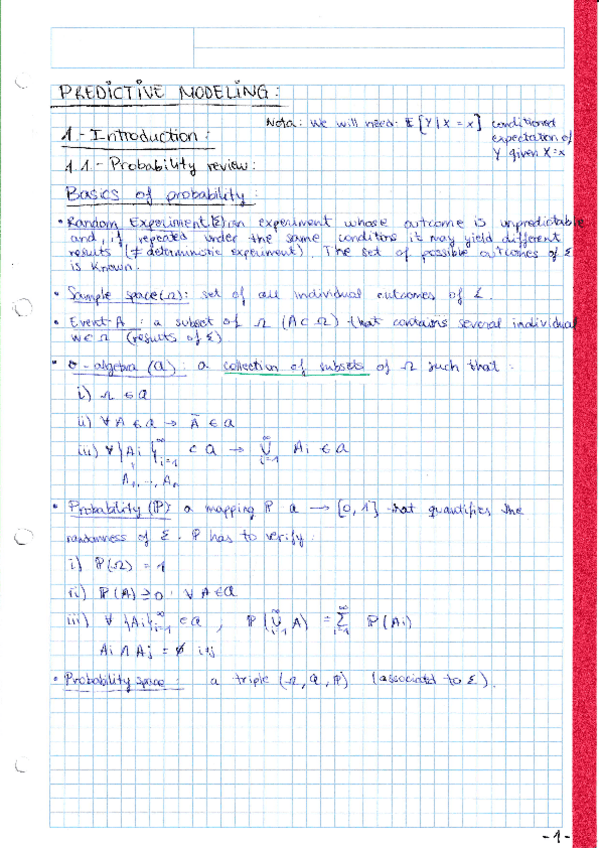 PREDICTIVE MODELING:
Nota: We will need: E[Y|X=x] conditioned
expectation of
Y given X=x
1.- Introduction:
1.1.- Probability review:
Basics of probability:
• Random Experiment (ξ): an experiment whose outcome is unpredictable
and, if repeated under the same conditions it may yield different
results (≠ deterministic experiment). The set of possible outcomes of ξ
is known.
• Sample space (Ω): set of all individual outcomes of ξ.
• Event A: a subset of Ω (A⊂Ω) that contains several individual
w∈Ω (results of ξ)
• σ-algebra (a): a collection of subsets of Ω such that:
i) Ω ∈ a
ii) ∀ A ∈ a → Ā ∈ a
iii) ∀ {Ai}∞i=1 ⊂ a → ∞∪i=1 Ai ∈ a
A1, ..., An
• Probability (P): a mapping P a → [0,1] that quantifies the
randomness of ξ. P has to verify:
i) P(Ω) = 1
ii) P(A) ≥ 0 ∀ A∈a
iii) ∀ {Ai}∞i=1 ⊂ a, P(∞∪i=1 A) = ∞Σi=1 P(Ai)
Ai ∩ Aj = ∅ i≠j
• Probability space: a triple (Ω, a, P) (associated to ξ).
-1-